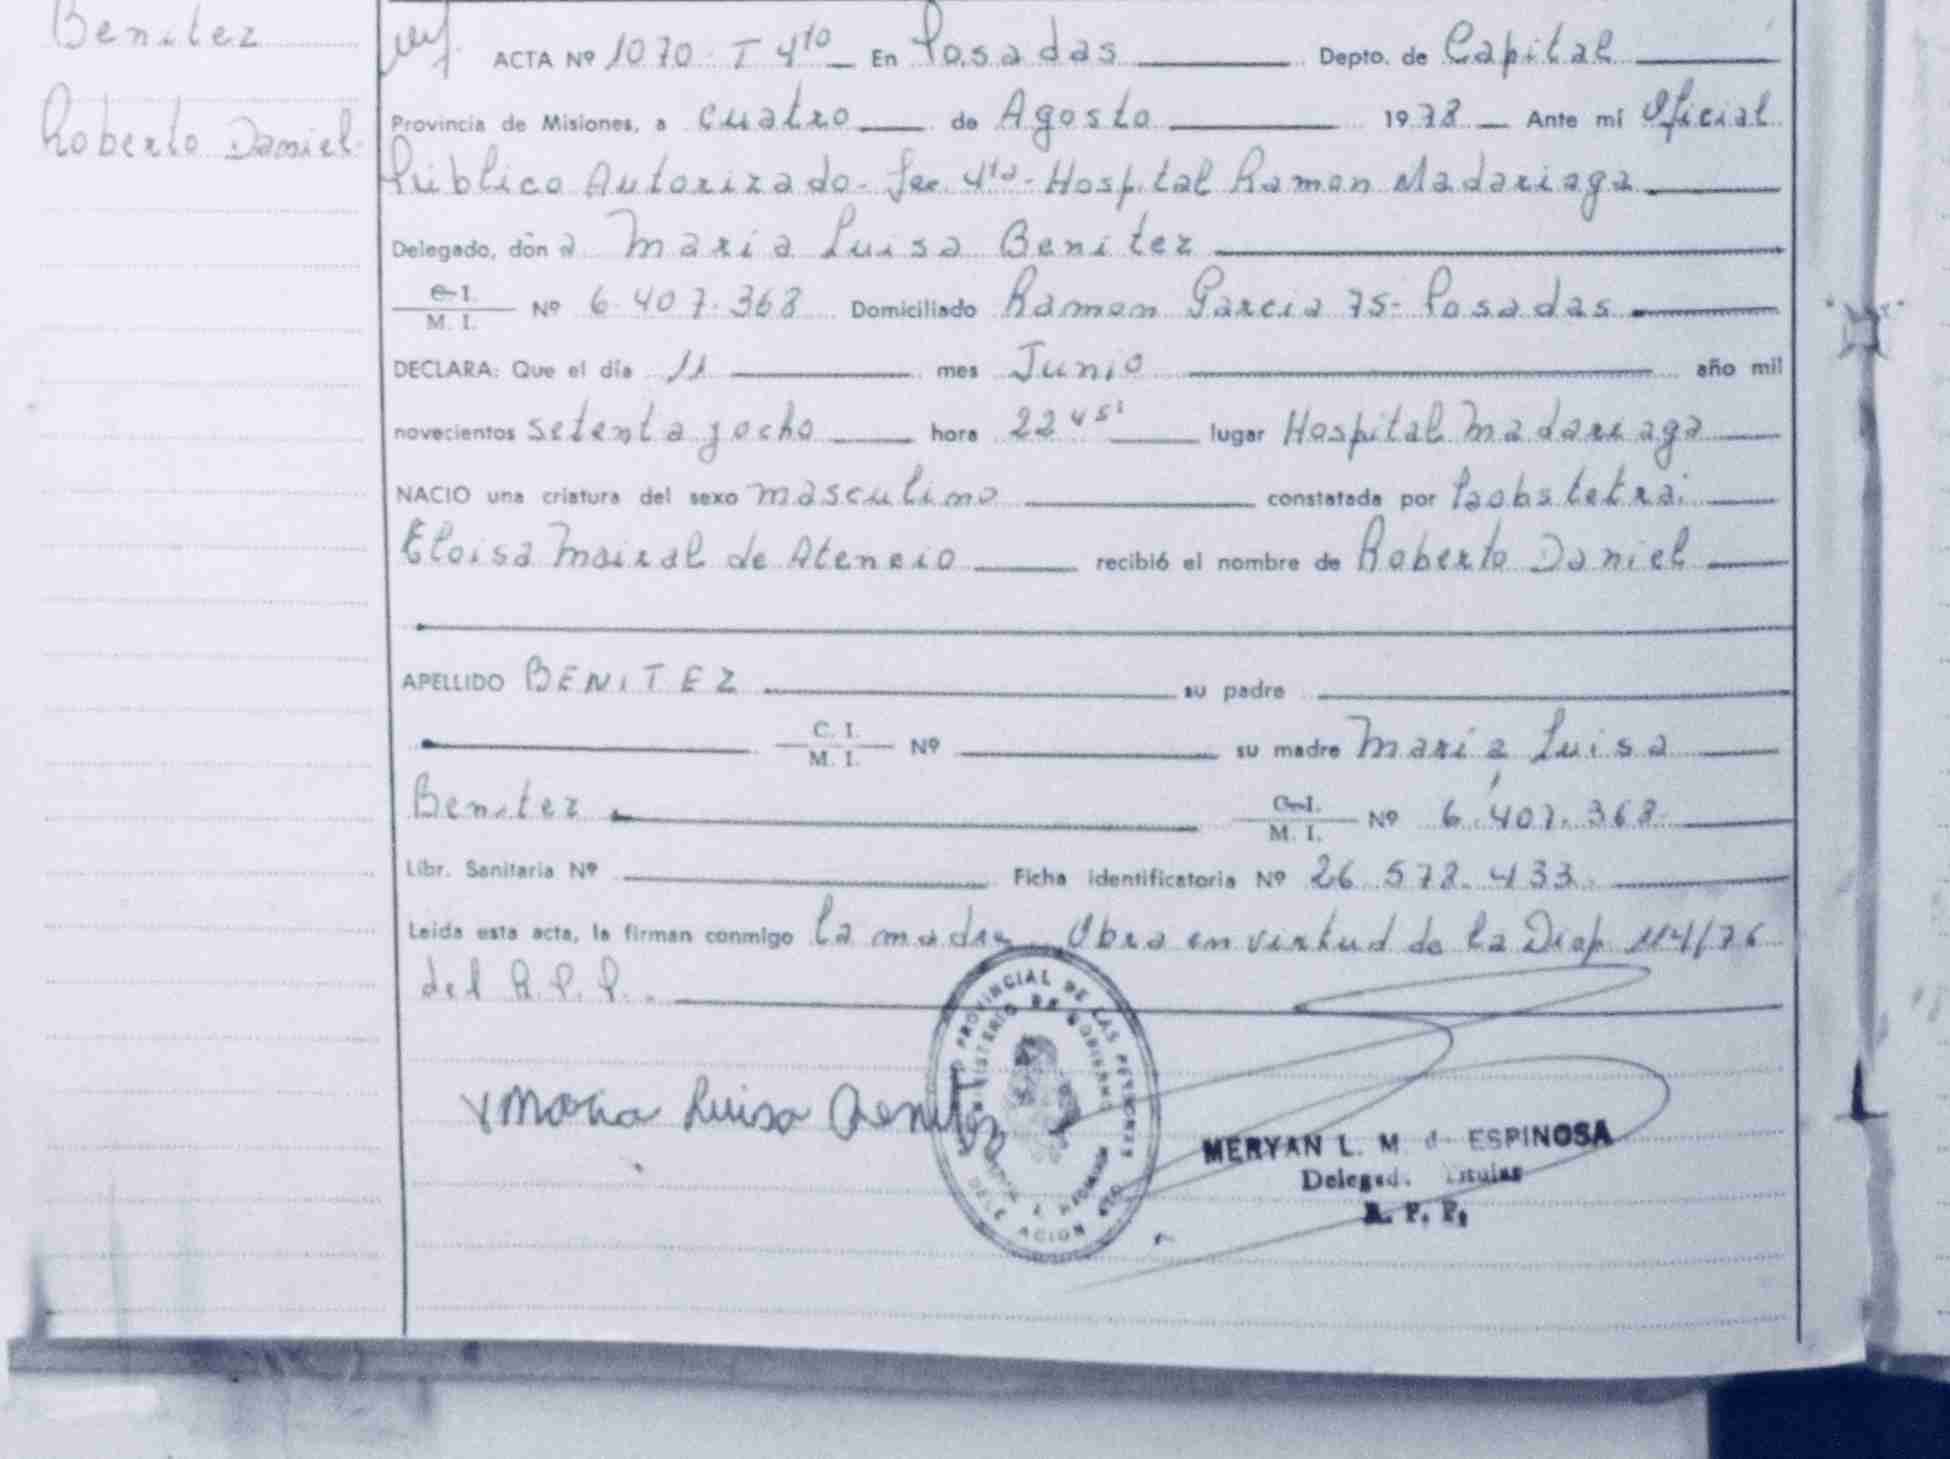 Benitez
Roberto Daniel
ACTA Nº 1070 T 4to En Posadas Depto. de Capital
Provincia de Misiones, a cuatro de Agosto 1978 Ante mí Oficial
Público Autorizado - Sec 4ta - Hospital Ramon Madariaga
Delegado, don a Maria Luisa Benitez
C. I. / M. I. Nº 6.407.368 Domiciliado Ramon Garcia 75 - Posadas
DECLARA: Que el día 11 mes Junio año mil
novecientos setenta y ocho hora 22 45' lugar Hospital Madariaga
NACIO una criatura del sexo masculino constatada por la obstetra
Eloisa Mairal de Atencio recibió el nombre de Roberto Daniel
APELLIDO BENITEZ su padre
C. I. / M. I. Nº su madre Maria Luisa
Benitez C. I. / M. I. Nº 6.407.368
Libr. Sanitaria Nº Ficha identificatoria Nº 26.578.433
Leída esta acta, la firman conmigo la madre Obra en virtud de la Disp 114/76
del R.P.P.
Maria Luisa Benitez
PROVINCIAL DE LAS PERSONAS
MINISTERIO DE GOBIERNO
MERYAN L. M. d ESPINOSA
R. P. P.